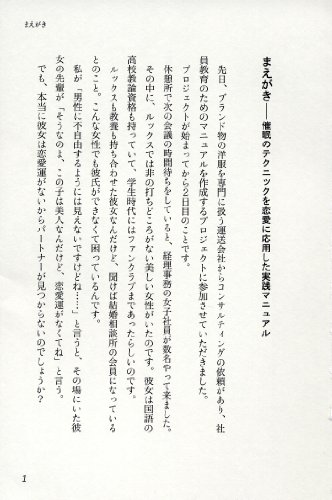 まえがき
まえがき——催眠のテクニックを恋愛に応用した実践マニュアル
先日、ブランド物の洋服を専門に扱う運送会社からコンサルティングの依頼があり、社
員教育のためのマニュアルを作成するプロジェクトに参加させていただきました。
プロジェクトが始まってから2日目のことです。
休憩所で次の会議の時間待ちをしていると、経理事務の女子社員が数名やって来ました。
その中に、ルックスでは非の打ちどころがない美しい女性がいたのです。彼女は国語の
高校教諭資格も持っていて、学生時代にはファンクラブまであったらしいのです。
ルックスも教養も持ち合わせた彼女なんだけど、聞けば結婚相談所の会員になっている
とのこと。こんな女性でも彼氏ができなくて困っているんです。
私が「男性に不自由するようには見えないですけどね……」と言うと、その場にいた彼
女の先輩が「そうなのよ、この子は美人なんだけど、恋愛運がなくてね」と言う。
でも、本当に彼女は恋愛運がないからパートナーが見つからないのでしょうか?
1